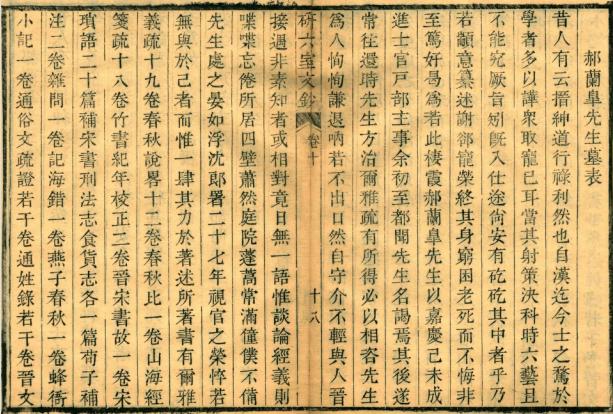 郝蘭皐先生墓表
昔人有云搢紳道行祿利然也自漢迄今士之騖於
學者多以譁衆取寵已耳當其射策決科時六藝且
不能究厥旨矧旣入仕途尙安有矻矻其中者乎乃
若顓意纂述謝郤寵榮終其身窮困老死而不悔非
至篤好曷爲若此棲霞郝蘭皐先生以嘉慶己未成
進士官戸部主事余初至都聞先生名謁焉其後遂
常往還時先生方治爾雅疏有所得必以相咨先生
爲人恂恂謙退吶若不出口然自守介不輕與人晉
研六室文鈔
卷十
十八
接遇非素知者或相對竟日無一語惟談論經義則
喋喋忘倦所居四壁蕭然庭院蓬蒿常滿僮僕不備
先生處之晏如浮沈郎署二十七年視官之榮悴若
無與於己者而惟一肆其力於著述所著書有爾雅
義疏十九卷春秋說畧十二卷春秋比一卷山海經
箋疏十八卷竹書紀年校正三卷晉宋書故一卷宋
瑣語二十篇補宋書刑法志食貨志各一篇荀子補
注二卷雜問一卷記海錯一卷燕子春秋一卷蜂衙
小記一卷通俗文疏證若干卷通姓錄若干卷晉文